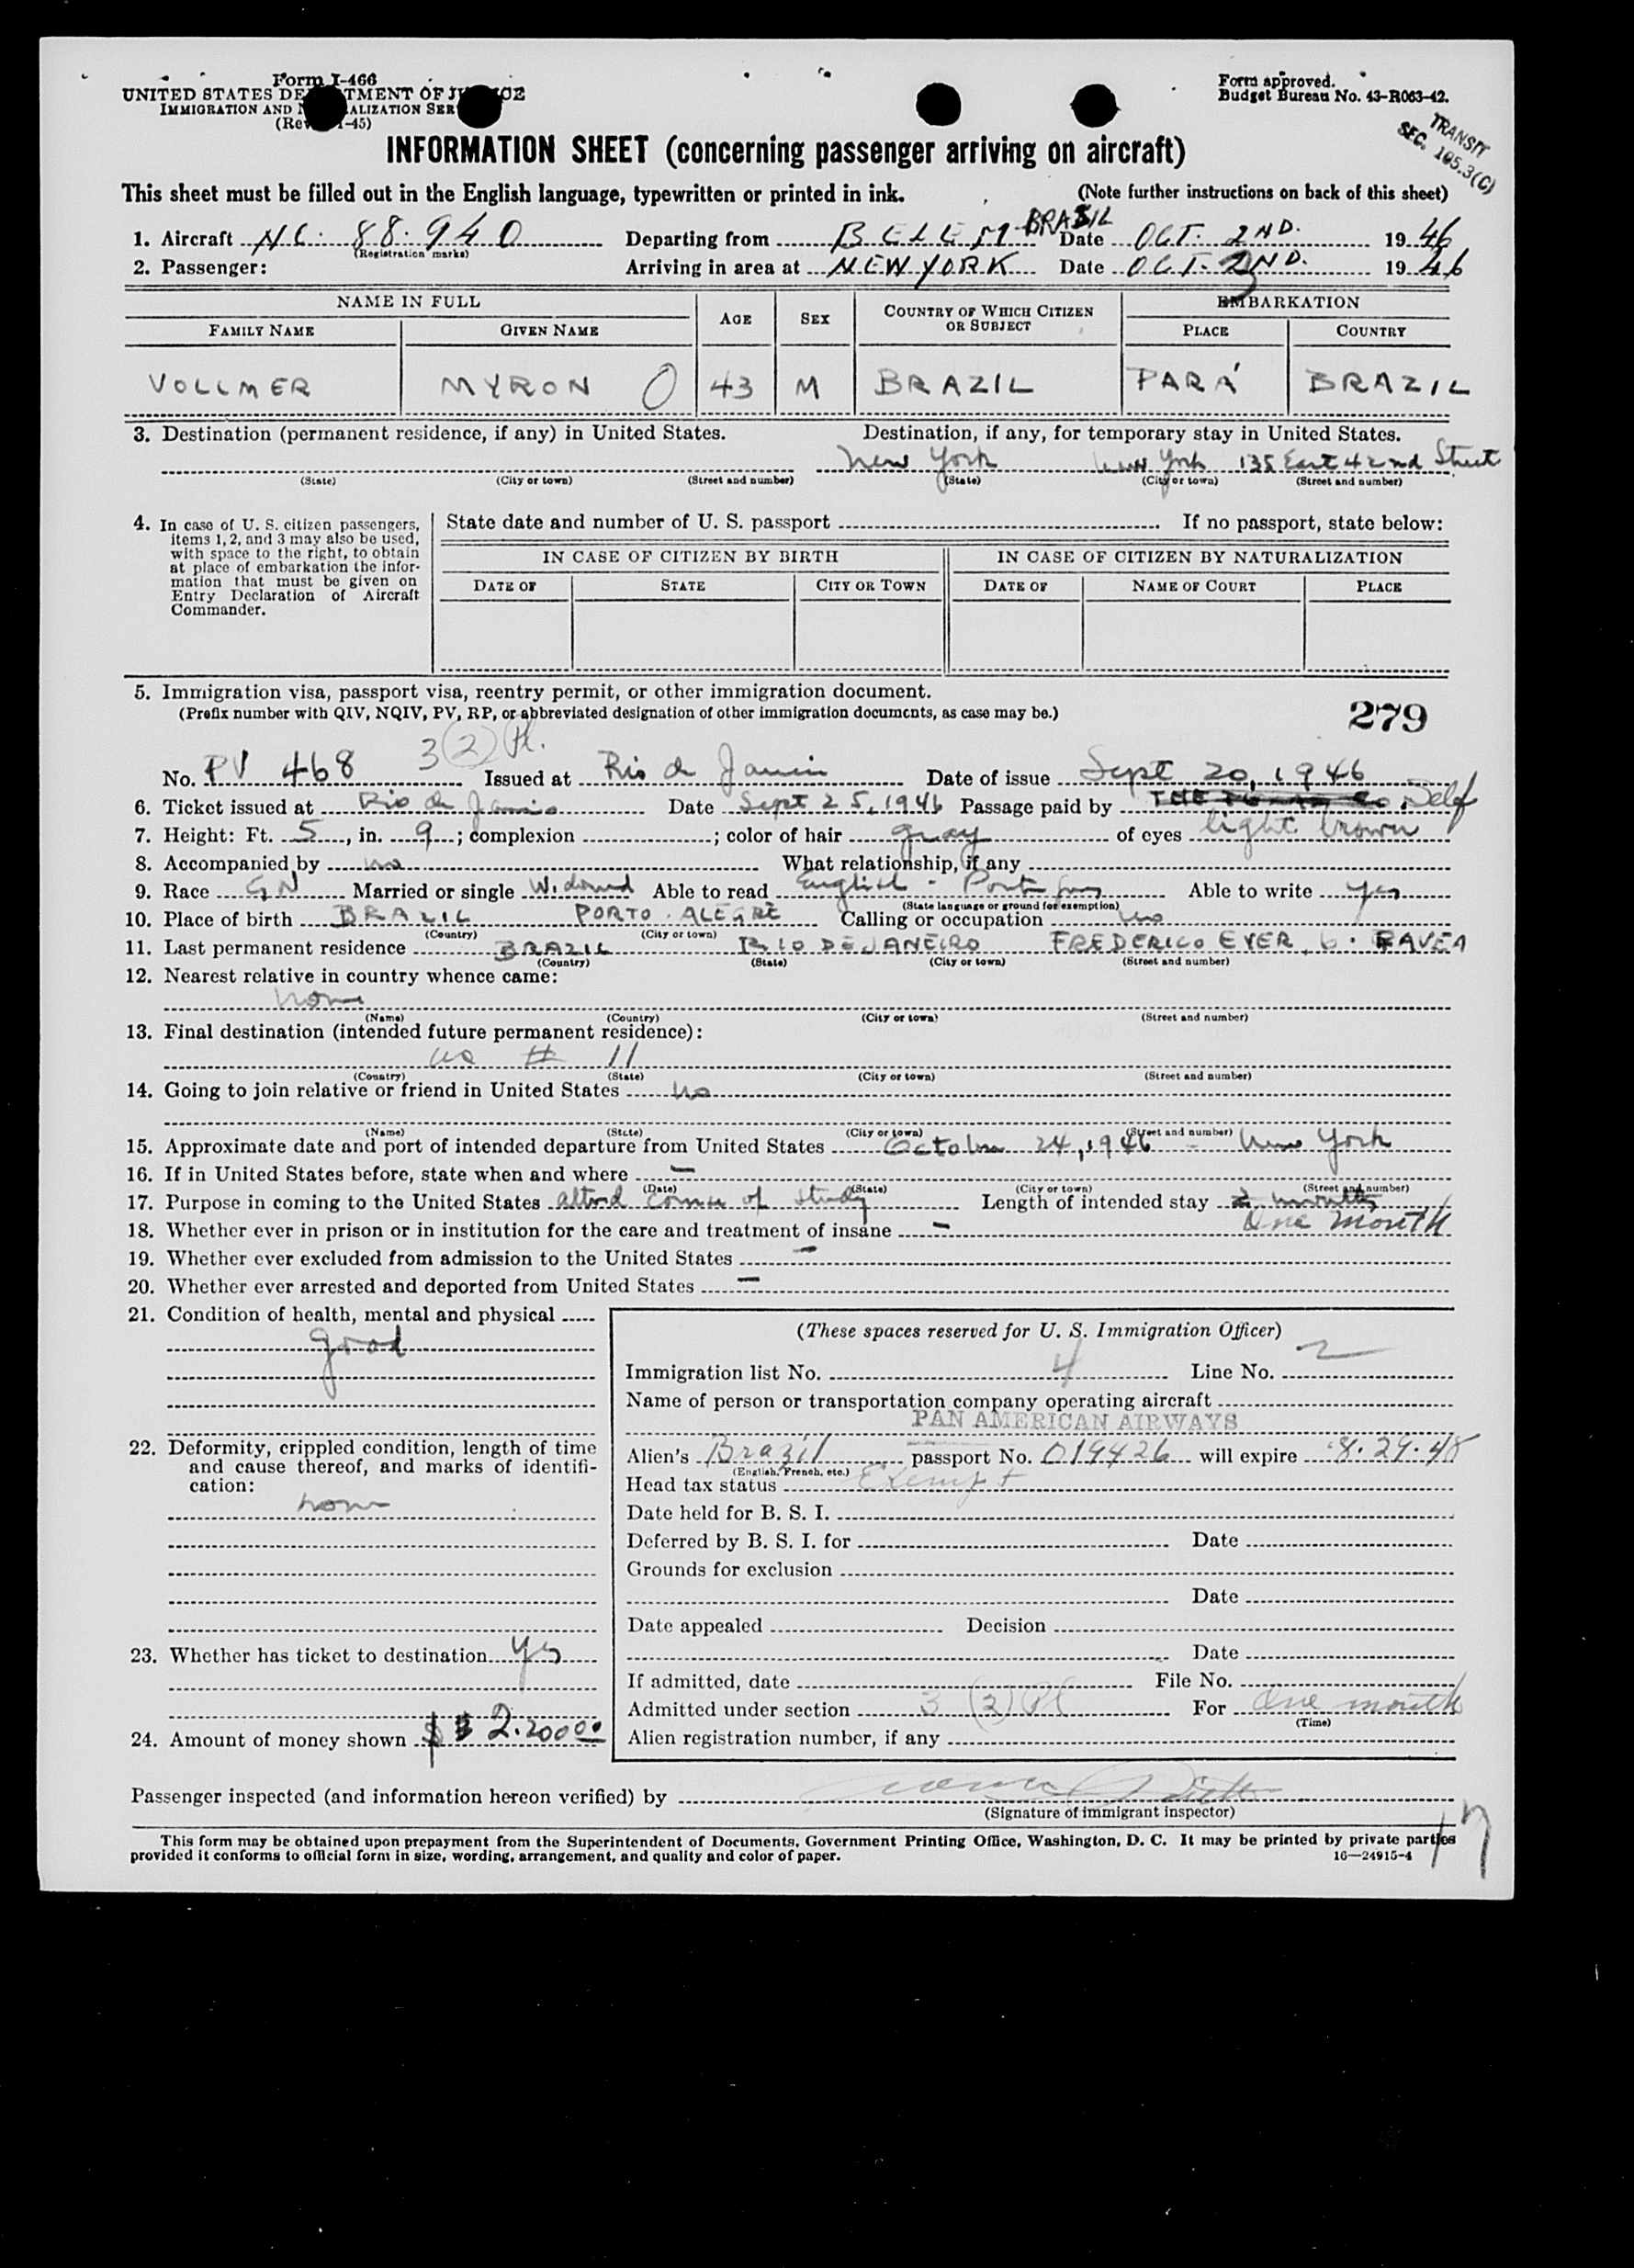 Form I-466
UNITED STATES DE TMENT OF J CE
IMMIGRATION AND N ALIZATION SER
(Rev. 1-45)
Form approved.
Budget Bureau No. 43-R063-42.
TRANSIT
SEC. 105.3(C)
INFORMATION SHEET (concerning passenger arriving on aircraft)
This sheet must be filled out in the English language, typewritten or printed in ink. (Note further instructions on back of this sheet)
1. Aircraft NC. 88.940 Departing from BELEM BRASIL Date OCT. 2ND. 1946
(Registration marks)
2. Passenger: Arriving in area at NEW YORK Date OCT. 2ND. 1946
NAME IN FULL AGE SEX COUNTRY OF WHICH CITIZEN OR SUBJECT EMBARKATION
FAMILY NAME GIVEN NAME PLACE COUNTRY
VOLLMER MYRON O 43 M BRAZIL PARÁ BRAZIL
3. Destination (permanent residence, if any) in United States. Destination, if any, for temporary stay in United States.
New York New York 135 East 42nd Street
(State) (City or town) (Street and number) (State) (City or town) (Street and number)
4. In case of U. S. citizen passengers, items 1, 2, and 3 may also be used, with space to the right, to obtain at place of embarkation the information that must be given on Entry Declaration of Aircraft Commander.
State date and number of U. S. passport If no passport, state below:
IN CASE OF CITIZEN BY BIRTH IN CASE OF CITIZEN BY NATURALIZATION
DATE OF STATE CITY OR TOWN DATE OF NAME OF COURT PLACE
5. Immigration visa, passport visa, reentry permit, or other immigration document.
(Prefix number with QIV, NQIV, PV, RP, or abbreviated designation of other immigration documents, as case may be.)
279
3 (2) Pl.
No. PV 468 Issued at Rio de Janeiro Date of issue Sept 20, 1946
6. Ticket issued at Rio de Janeiro Date Sept 25, 1946 Passage paid by Self
7. Height: Ft. 5, in. 9; complexion ; color of hair gray of eyes light brown
8. Accompanied by no What relationship, if any
9. Race GN Married or single Widowed Able to read English - Portuguese Able to write yes
(State language or ground for exemption)
10. Place of birth BRAZIL PORTO ALEGRE Calling or occupation no
(Country) (City or town)
11. Last permanent residence BRAZIL RIO DE JANEIRO FREDERICO EYER, 6. GAVEA
(Country) (State) (City or town) (Street and number)
12. Nearest relative in country whence came:
none
(Name) (Country) (City or town) (Street and number)
13. Final destination (intended future permanent residence):
no # 11
(Country) (State) (City or town) (Street and number)
14. Going to join relative or friend in United States no
(Name) (State) (City or town) (Street and number)
15. Approximate date and port of intended departure from United States October 24, 1946 - New York
16. If in United States before, state when and where —
(Date) (State) (City or town) (Street and number)
17. Purpose in coming to the United States attend course of study Length of intended stay 2 months
One month
18. Whether ever in prison or in institution for the care and treatment of insane —
19. Whether ever excluded from admission to the United States —
20. Whether ever arrested and deported from United States —
21. Condition of health, mental and physical
good
22. Deformity, crippled condition, length of time and cause thereof, and marks of identification:
none
23. Whether has ticket to destination yes
24. Amount of money shown $ $ 2.20000
(These spaces reserved for U. S. Immigration Officer)
Immigration list No. 4 Line No. 2
Name of person or transportation company operating aircraft
PAN AMERICAN AIRWAYS
Alien's Brazil passport No. 019426 will expire 8.29.48
(English, French, etc.)
Head tax status Exempt
Date held for B. S. I.
Deferred by B. S. I. for Date
Grounds for exclusion
Date
Date appealed Decision
Date
If admitted, date File No.
Admitted under section 3 (2) Pl For One month
(Time)
Alien registration number, if any
Passenger inspected (and information hereon verified) by
(Signature of immigrant inspector)
This form may be obtained upon prepayment from the Superintendent of Documents, Government Printing Office, Washington, D. C. It may be printed by private parties
provided it conforms to official form in size, wording, arrangement, and quality and color of paper. 16—24915-4
17